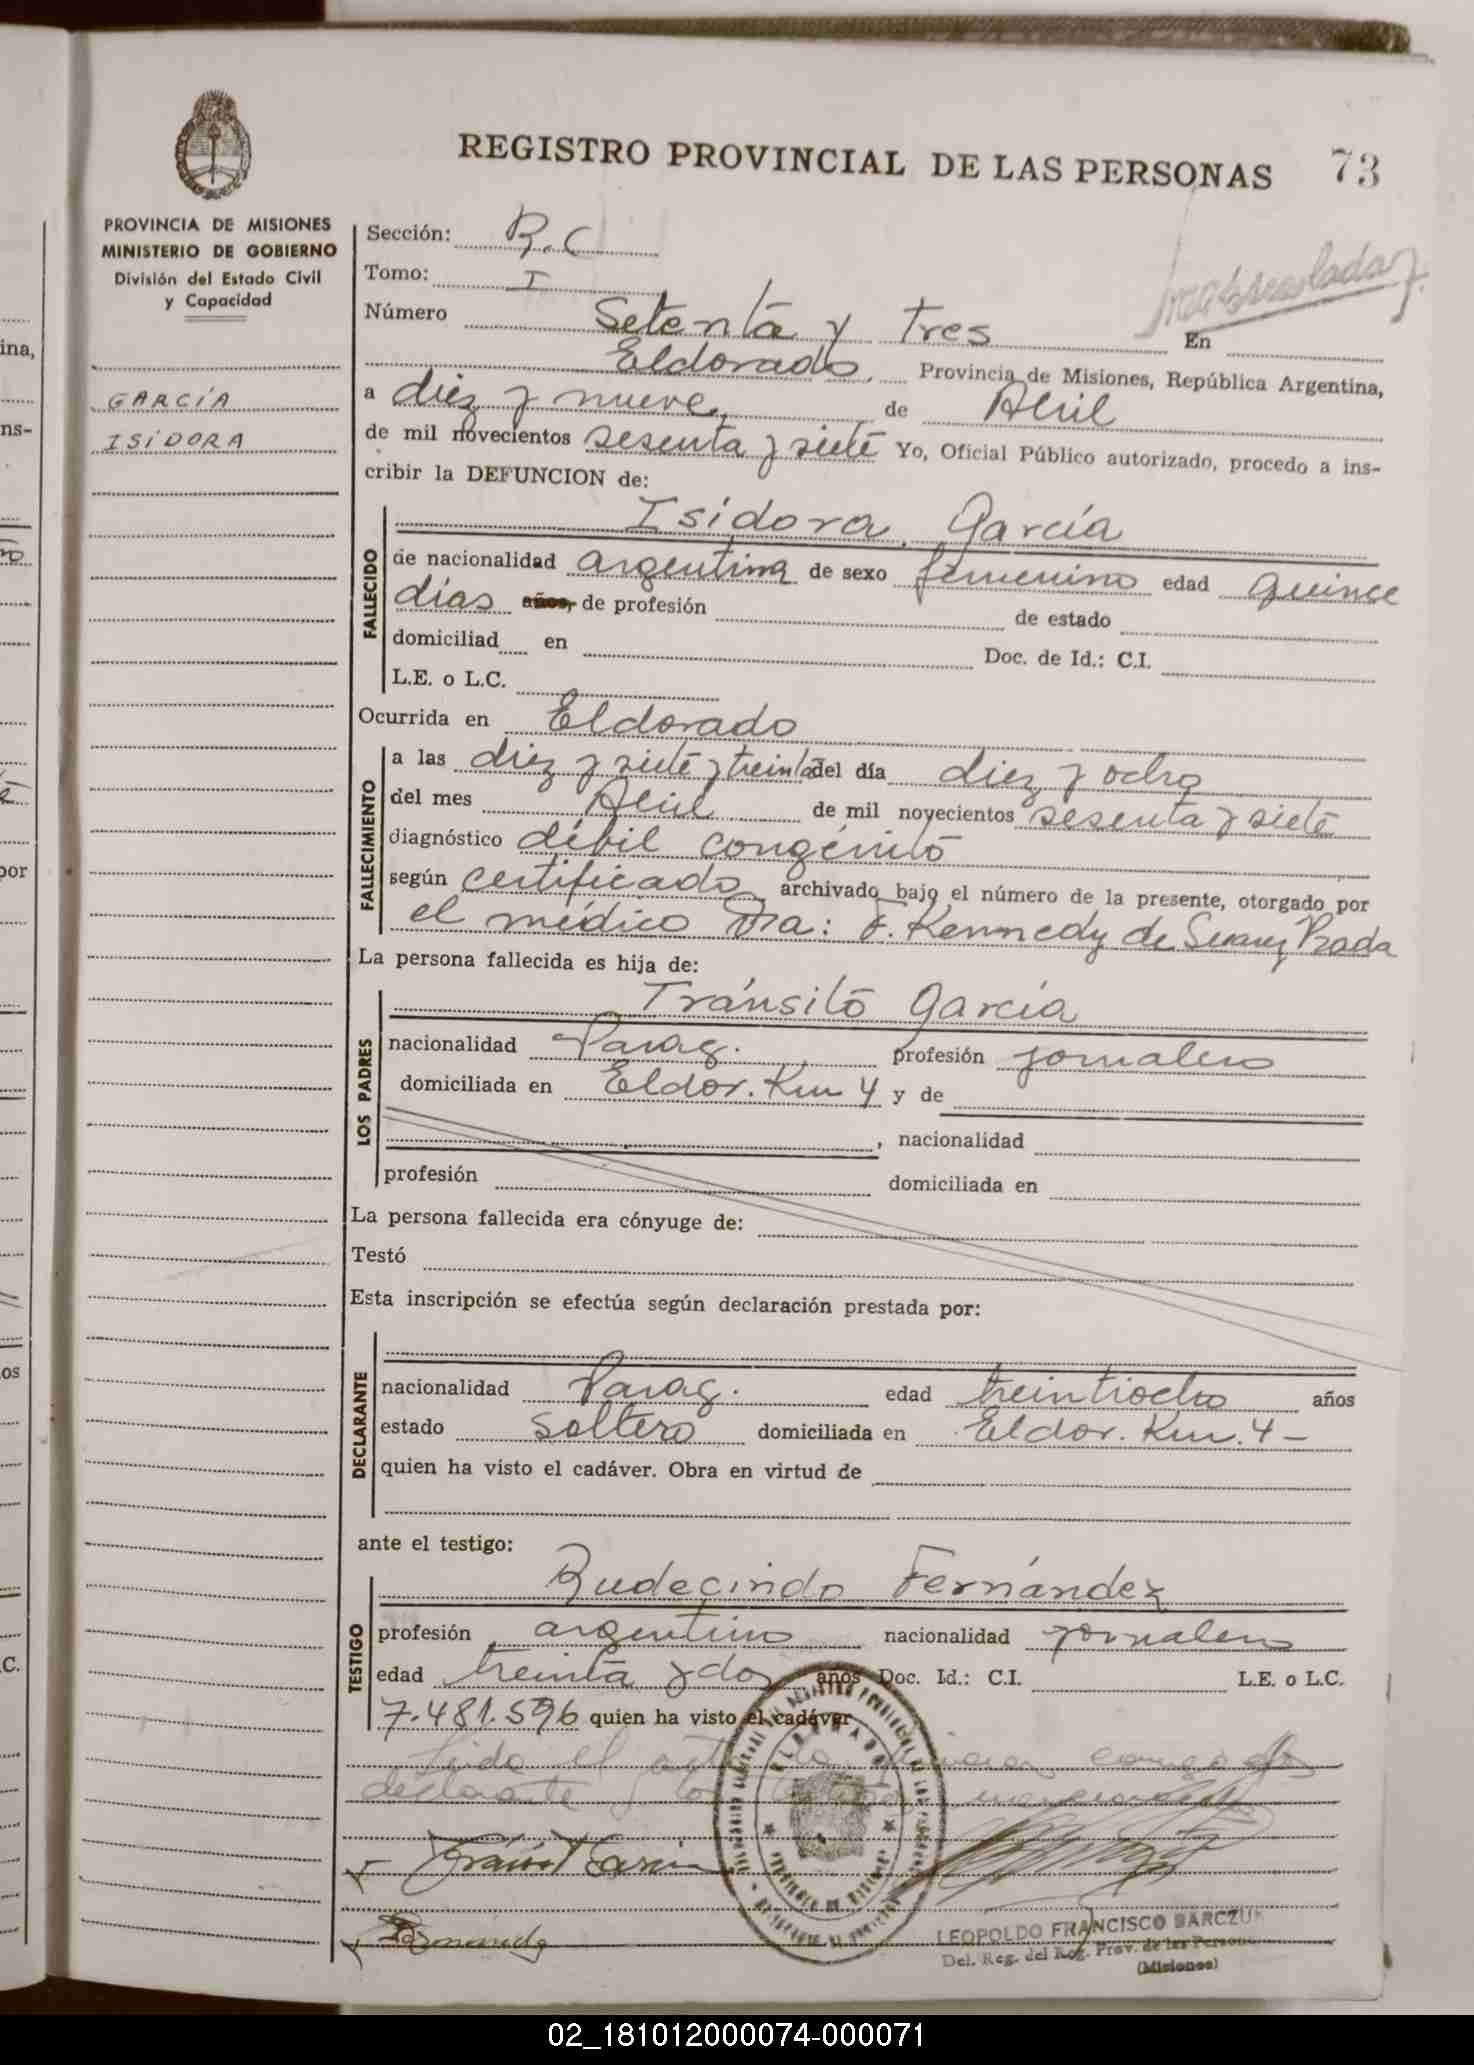 REGISTRO PROVINCIAL DE LAS PERSONAS 73
PROVINCIA DE MISIONES
MINISTERIO DE GOBIERNO
División del Estado Civil
y Capacidad
GARCÍA
ISÍDORA
Sección: R.C
Tomo: I
Número Setenta y tres En
Eldorado, Provincia de Misiones, República Argentina,
a diez y nueve, de Abril
de mil novecientos sesenta y siete Yo, Oficial Público autorizado, procedo a ins-
cribir la DEFUNCION de:
FALLECIDO
Isídora García
de nacionalidad argentina de sexo femenino edad quince
días años, de profesión de estado
domiciliad en Doc. de Id.: C.I.
L.E. o L.C.
Ocurrida en Eldorado
FALLECIMIENTO
a las diez y siete y treinta del día diez y ocho
del mes Abril de mil novecientos sesenta y siete
diagnóstico débil congénito
según certificado archivado bajo el número de la presente, otorgado por
el médico Dra: F. Kennedy de Suarez Prada
La persona fallecida es hija de:
LOS PADRES
Tránsito García
nacionalidad Parag. profesión jornalero
domiciliada en Eldor. Km 4 y de
, nacionalidad
profesión domiciliada en
La persona fallecida era cónyuge de:
Testó
Esta inscripción se efectúa según declaración prestada por:
DECLARANTE
nacionalidad Parag. edad treintiocho años
estado soltero domiciliada en Eldor. Km. 4 –
quien ha visto el cadáver. Obra en virtud de
ante el testigo:
TESTIGO
Rudecindo Fernández
profesión argentino nacionalidad jornalero
edad treinta y dos años Doc. Id.: C.I. L.E. o L.C.
7.481.596 quien ha visto el cadáver
Leido el acta la firman conmigo el
declarante y
ELDORADO
PROVINCIA DE MISIONES
LEOPOLDO FRANCISCO BARCZUK
Del. Reg. del Reg. Prov. de las Personas
(Misiones)
02_181012000074-000071